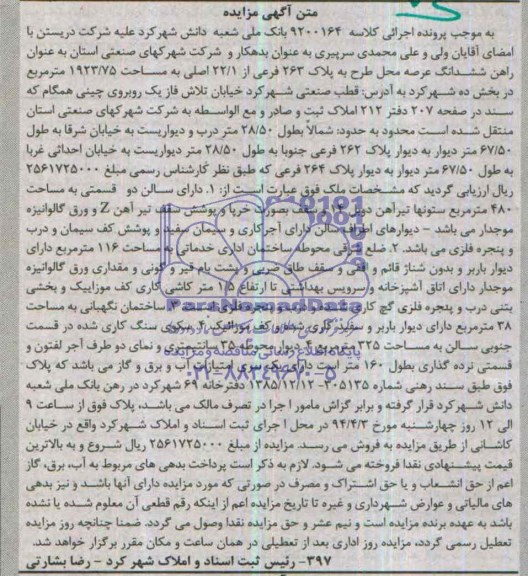 متن آگهی مزایده
به موجب پرونده اجرائی کلاسه ۹۲۰۰۱۶۴ بانک ملی شعبه دانش شهرکرد علیه شرکت دریستن با
امضای آقایان ولی و علی محمدی سرپیری به عنوان بدهکار و شرکت شهرکهای صنعتی استان به عنوان
راهن ششدانگ عرصه محل طرح به پلاک ۲۶۳ فرعی از ۲۲/۱ اصلی به مساحت ۱۹۲۳/۷۵ مترمربع
در بخش ده شهرکرد به آدرس: قطب صنعتی شهرکرد خیابان تلاش فاز یک روبروی چینی همگام که
سند در صفحه ۲۰۷ دفتر ۲۱۲ املاک ثبت و صادر و مع الواسطه به شرکت شهرکهای صنعتی استان
منتقل شده است محدود به حدود: شمالاً بطول ۲۸/۵۰ متر درب و دیواریست به خیابان شرقا به طول
۶۷/۵۰ متر دیوار به دیوار پلاک ۲۶۲ فرعی جنوبا به طول ۲۸/۵۰ متر دیواریست به خیابان احداثی غربا
به طول ۶۷/۵۰ متر دیوار به دیوار پلاک ۲۶۴ فرعی که طبق نظر کارشناس رسمی مبلغ ۲۵۶۱۷۲۵۰۰۰
ریال ارزیابی گردید که مشخصات ملک فوق عبارت است از: ۱. دارای سالن دو قسمتی به مساحت
۴۸۰ مترمربع ستونها تیرآهن دوبل سقف بصورت خرپا و پوشش سقف تیر آهن Z و ورق گالوانیزه
موجدار می باشد - دیوارهای اطراف سالن دارای آجرکاری و سیمان سفید و پوشش کف سیمان و درب
و پنجره فلزی می باشد. ۲. ضلع شرقی محوطه ساختمان اداری خدماتی به مساحت ۱۱۶ مترمربع دارای
دیوار باربر و بدون شناژ قائم و افقی و سقف طاق ضربی و پشت بام قیر و گونی و مقداری ورق گالوانیزه
موجدار دارای اتاق آشپزخانه و سرویس بهداشتی تا ارتفاع ۱/۵ متر کاشی کاری کف موزاییک و بخشی
بتنی درب و پنجره فلزی گچ کاری شده و درب و پنجره فلزی است. ۳. ساختمان نگهبانی به مساحت
۳۸ مترمربع دارای دیوار باربر و سفیدکاری شده و کف موزاییک ۴. سکوی سنگ کاری شده در قسمت
جنوبی سالن به مساحت ۳۲۵ مترمربع ۵. دیوار محوطه ۳۵ سانتیمتری و نمای دو طرف آجر لفتون و
قسمتی نرده گذاری بطول ۱۶۰ متر است دارای یک سری امتیازات آب و برق و گاز می باشد که پلاک
فوق طبق سند رهنی شماره ۳۰۵۱۳۵-۱۳۸۵/۱۲/۱۲ دفترخانه ۶۹ شهرکرد در رهن بانک ملی شعبه
دانش شهرکرد قرار گرفته و برابر گزاش مامور اجرا در تصرف مالک می باشد، پلاک فوق از ساعت ۹
الی ۱۲ روز چهارشنبه مورخ ۹۴/۴/۳ در محل اجرای ثبت اسناد و املاک شهرکرد واقع در خیابان
کاشانی از طریق مزایده به فروش می رسد. مزایده از مبلغ ۲۵۶۱۷۲۵۰۰۰ ریال شروع و به بالاترین
قیمت پیشنهادی نقدا فروخته می شود. لازم به ذکر است پرداخت بدهی های مربوط به آب، برق، گاز
اعم از حق انشعاب و یا حق اشتراک و مصرف در صورتی که مورد مزایده دارای آنها باشد و نیز بدهی
های مالیاتی و عوارض شهرداری و غیره تا تاریخ مزایده اعم از اینکه رقم قطعی آن معلوم شده یا نشده
باشد به عهده برنده مزایده است و نیم عشر و حق مزایده نقدا وصول می گردد. ضمنا چنانچه روز مزایده
تعطیل رسمی گردد، مزایده روز اداری بعد از تعطیلی در همان ساعت و مکان مقرر برگزار خواهد شد.
۳۹۷- رئیس ثبت اسناد و املاک شهر کرد - رضا بشارتی
ParsNamadData
پایگاه اطلاع رسانی مناقصه و مزایده
۰۲۱-۸۸۳۴۹۶۷۰-۵